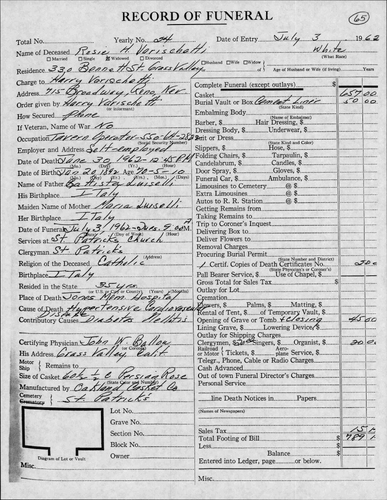 RECORD OF FUNERAL
65
Total No. Yearly No. 84 Date of Entry July 3 1962
Name of Deceased Rosie H. Verischetti White
Married Single Widowed Divorced Husband Wife Widow (What Race)
Residence 330 Bennett St Grass Valley Age of Husband or Wife (if living) Years
Charge to Harry Varischetti
Address 715 Broadway, Reno, Nev
Order given by Harry Varischetti
How Secured Phone
If Veteran, Name of War No
Occupation Tavern Operator
(Social Security Number)
Employer and Address Self-employed
Date of Death June 30, 1962-12:45 PM
Date of Birth Jan 20 1892 Age 70-5-10
Name of Father Battista Luiselli
His Birthplace Italy
Maiden Name of Mother Maria Luiselli
Her Birthplace Italy
Date of Funeral July 3, 1962 9:00 AM
Services at St Patricks Church
Clergyman St Patricks
Religion of the Deceased Catholic
Birthplace Italy
Resided in the State 35 yrs
Place of Death Jones Mem. Hospital
Cause of Death Hypertensive Cardiovascular
Contributory Causes Diabetes Mellitus
Certifying Physician John W. Bailey
His Address Grass Valley Calif
Motor Ship Remains to
Size of Casket 6ot 1/2 C Persian Rose
(State Color and Number)
Manufactured by Oakland Casket Co
Cemetery Crematory St. Patricks
Lot No.
Grave No.
Section No.
Block No.
Owner
Diagram of Lot or Vault
Misc.
Complete Funeral (except outlays) $
Casket 657 00
Burial Vault or Box Cement Liner 50 00
(Name of Manufacturer)
Embalming Body
(Name of Embalmer)
Barber, $ Hair Dressing, $
Dressing Body, $ Underwear, $
Suit or Dress
(State Kind and Color)
Slippers, $ Hose, $
Folding Chairs, $ Tarpaulin, $
Candelabrum, $ Candles, $
Door Spray, $ Gloves, $
Funeral Car, $ Ambulance, $
Limousines to Cemetery @ $
Extra Limousines @ $
Autos to R. R. Station @ $
Getting Remains from
Taking Remains to
Trip to Coroner's Inquest
Delivering Box to
Deliver Flowers to
Removal Charges
Procuring Burial Permit
(State Number and District)
1 Certif. Copies of Death Certificates No. 2 00
(State Physician's or Coroner's)
Pall Bearer Service, $ Use of Chapel, $
Gross Total for Sales Tax $
Outlay for Lot
Cremation
Flowers, $ Palms, $ Matting, $
Rental of Tent, $ of Temporary Vault, $
Opening of Grave or Tomb + closing 45 00
Lining Grave, $ Lowering Device, $
Outlay for Shipping Charges
Clergymen, $ Singers, $ Organist, $ 20 0
Railroad or Motor Tickets, $ Aeroplane Service, $
Telegr., Phone, Cable or Radio Charges
Cash Advanced
Out of town Funeral Director's Charges
Personal Service
line Death Notices in Papers
(Names of Newspapers)
Sales Tax 15
Total Footing of Bill $ 789
Less
Balance $
Entered into Ledger, page or below.
Misc.